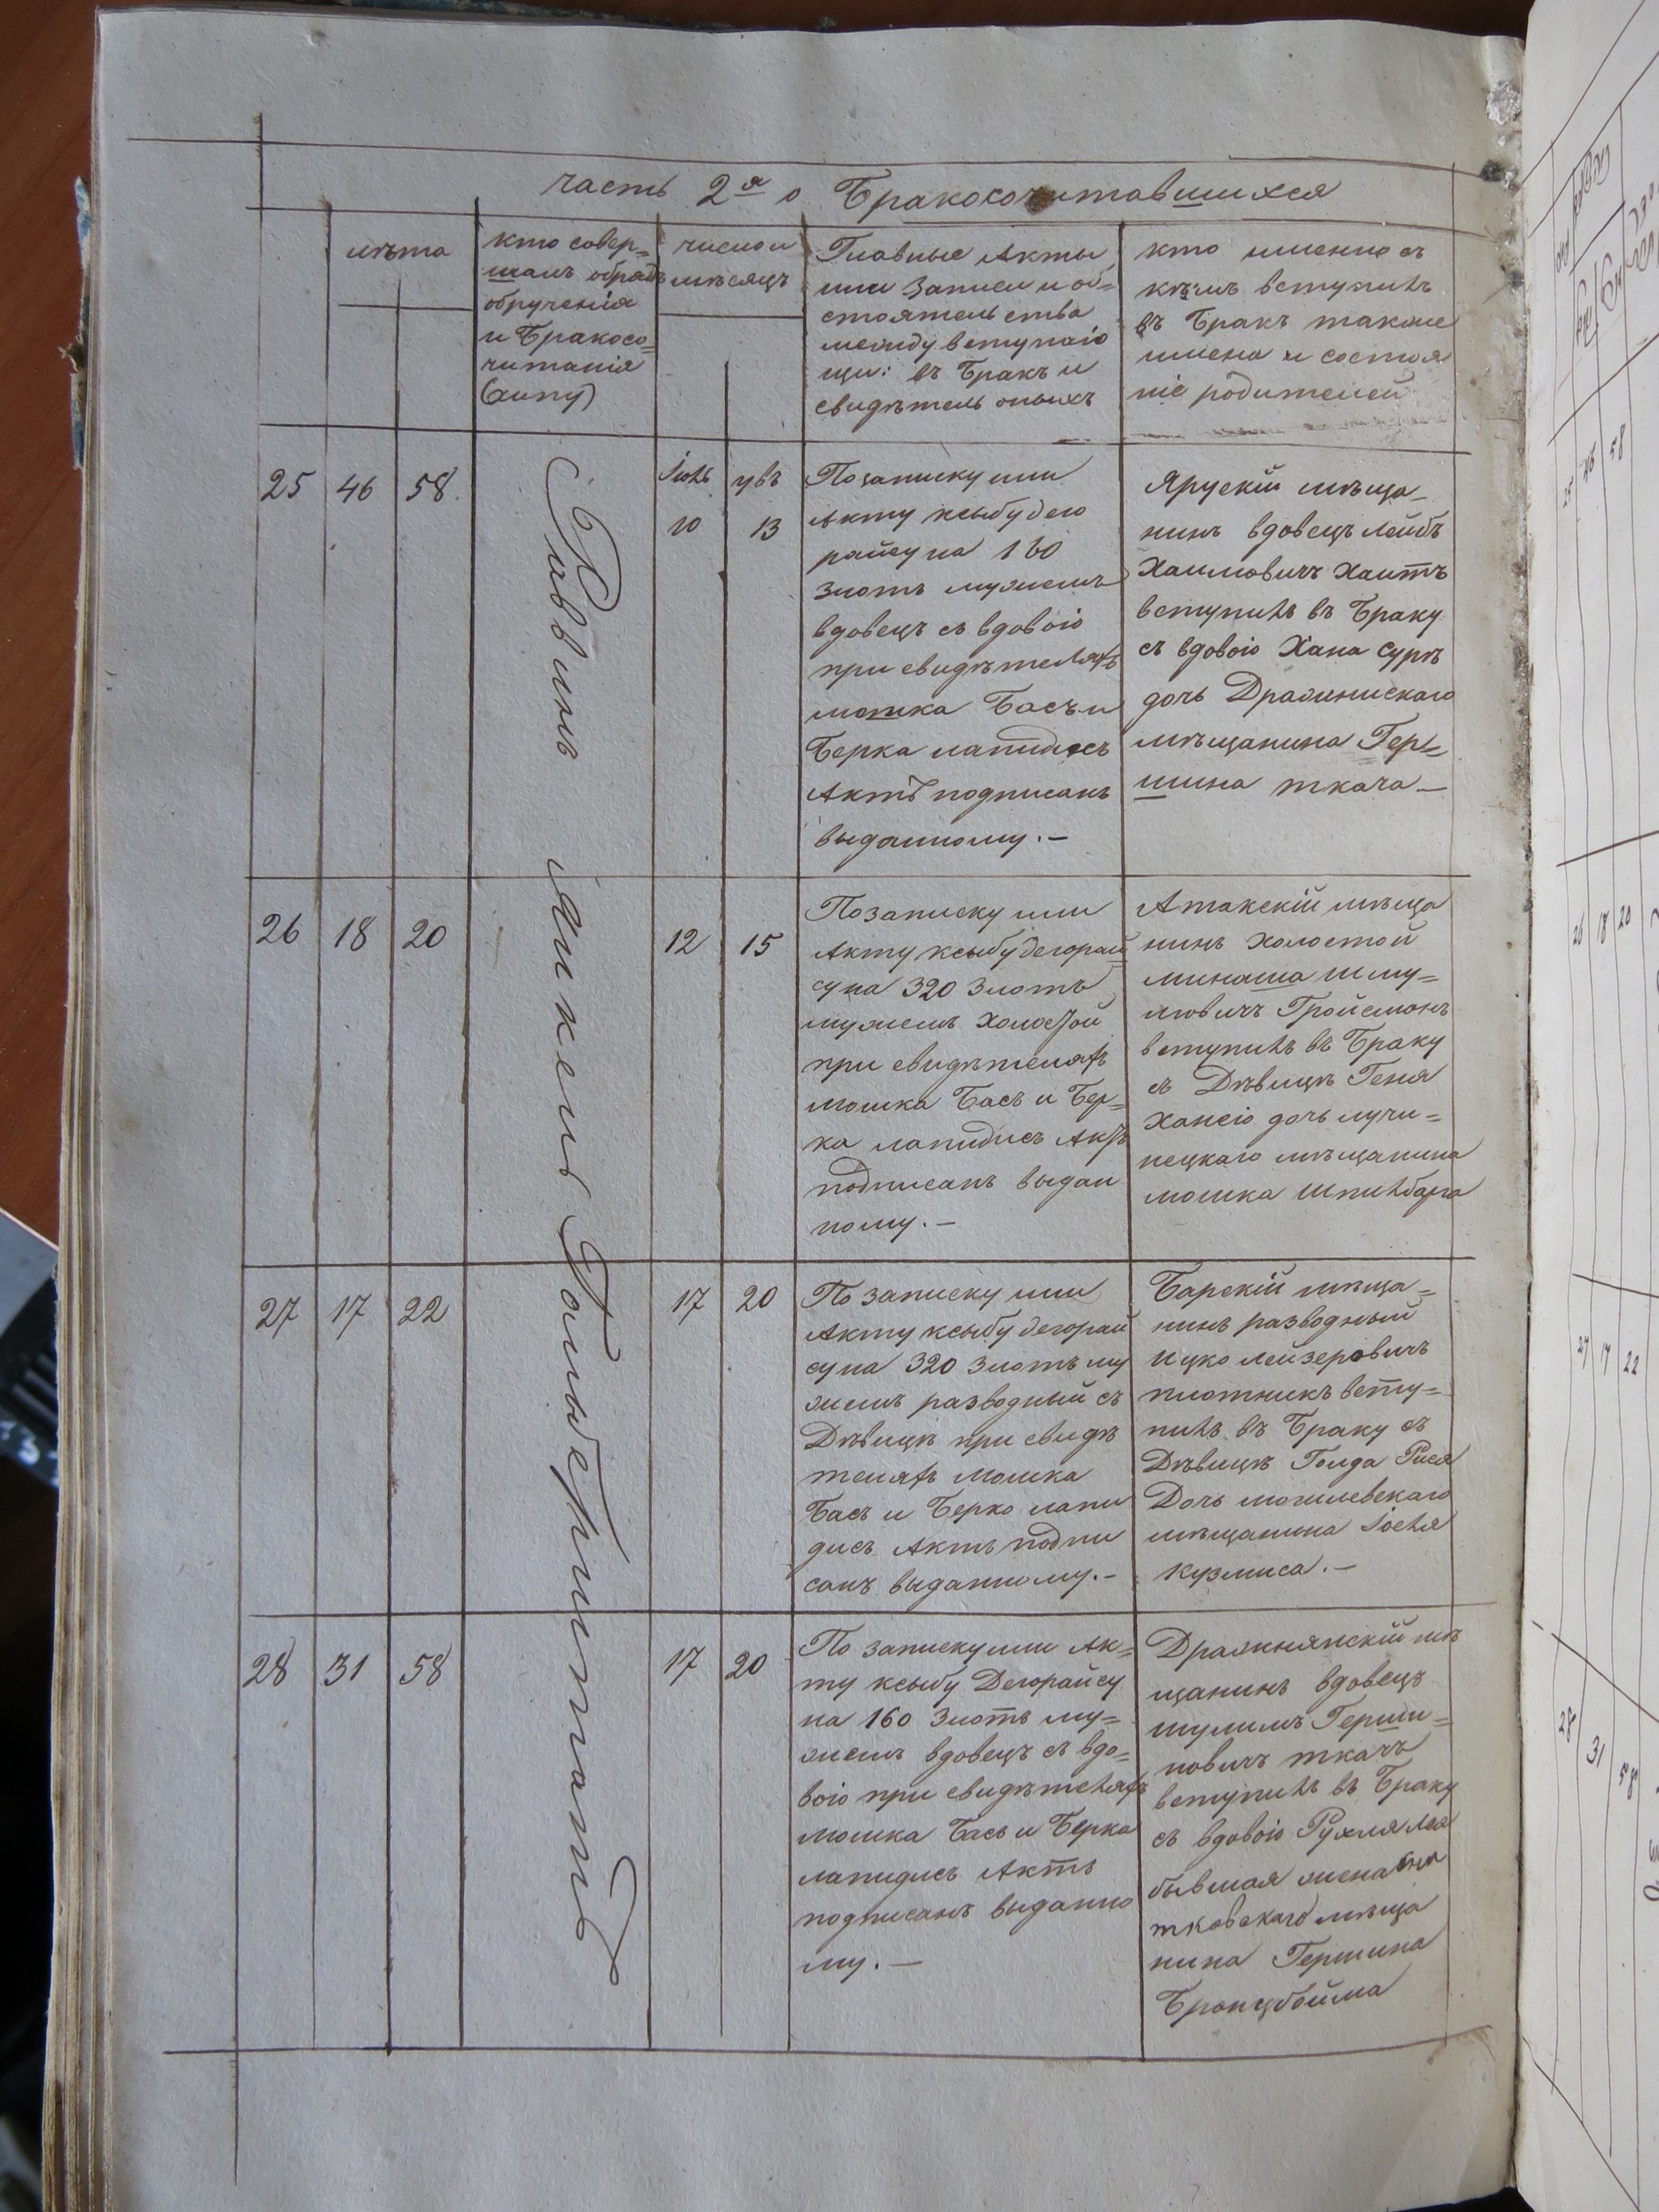 часть 2я о Бракосочитавшихся
лѣта
кто совер=
шалъ обрядъ
обрученія
и Бракосо=
читанія
(хипу)
число и
мѣсяцъ
Главные Акты
или Записи и об=
стоятельства
между вступаю
щи: въ Бракъ и
свидѣтель оныхъ
кто именно съ
кѣмъ вступилъ
въ Бракъ также
имена и состоя
ніе родителей
Раввинъ Янкель
25 46 58
Іюль
10 13
По запискуили
Акту ксыбу дего
райсу на 160
Злотъ мужемъ
вдовецъ съ вдовою
при свидѣтеляхъ
мошка Басъ и
Берка лапидисъ
Актъ подписанъ
выданному. —
Ярускій мѣща_
нинъ вдовецъ лейбъ
Хаимовичъ Хаитъ
вступилъ въ Браку
съ вдовою Хана Суръ
дочь
мѣщанина Гер=
шина ткача —
26 18 20
12 15
По запискуили
Акту ксыбу дегорай
су на 320 Злотъ
мужемъ холостой
при свидѣтеляхъ
мошка Басъ и Бер=
ка лапидисъ Актъ
подписанъ выдан
ному. —
Атакскій мѣща
нинъ холостой
минаша Шму=
ловичъ Гройсманъ
вступилъ въ Браку
съ Дѣвицъ Геня
Хансю дочь лучи=
нецкаго мѣщанина
мошка
27 17 22
17 20
По запискуили
Акту ксыбу дегорай
су на 320 Злотъ му
жемъ разводный съ
Дѣвицъ при свидѣ
теляхъ Мошка
Басъ и Берко лапи
дисъ Актъ подпи
санъ выданному. —
Барскій мѣща=
нинъ разводный
Ицко лейзеровичъ
плотникъ всту=
пилъ въ Браку съ
Дѣвицъ Голда Рися
Дочь могилевскаго
мѣщанина Іосля
Кузлиса. —
28 31 58
17 20
По запискуили Ак=
ту ксыбу Дегорайсу
на 160 Злотъ му=
жемъ вдовецъ съ вдо=
вою при свидѣтеляхъ
Мошка Басъ и Берка
лапидисъ Актъ
подписанъ выданно
му. —
Дражнянскій мѣ
щанинъ вдовецъ
шулимъ Герши=
новичъ ткачъ
вступилъ въ Браку
съ вдовою Рухля Лея
бывшая жена
тковскаго мѣща
нина Гершина